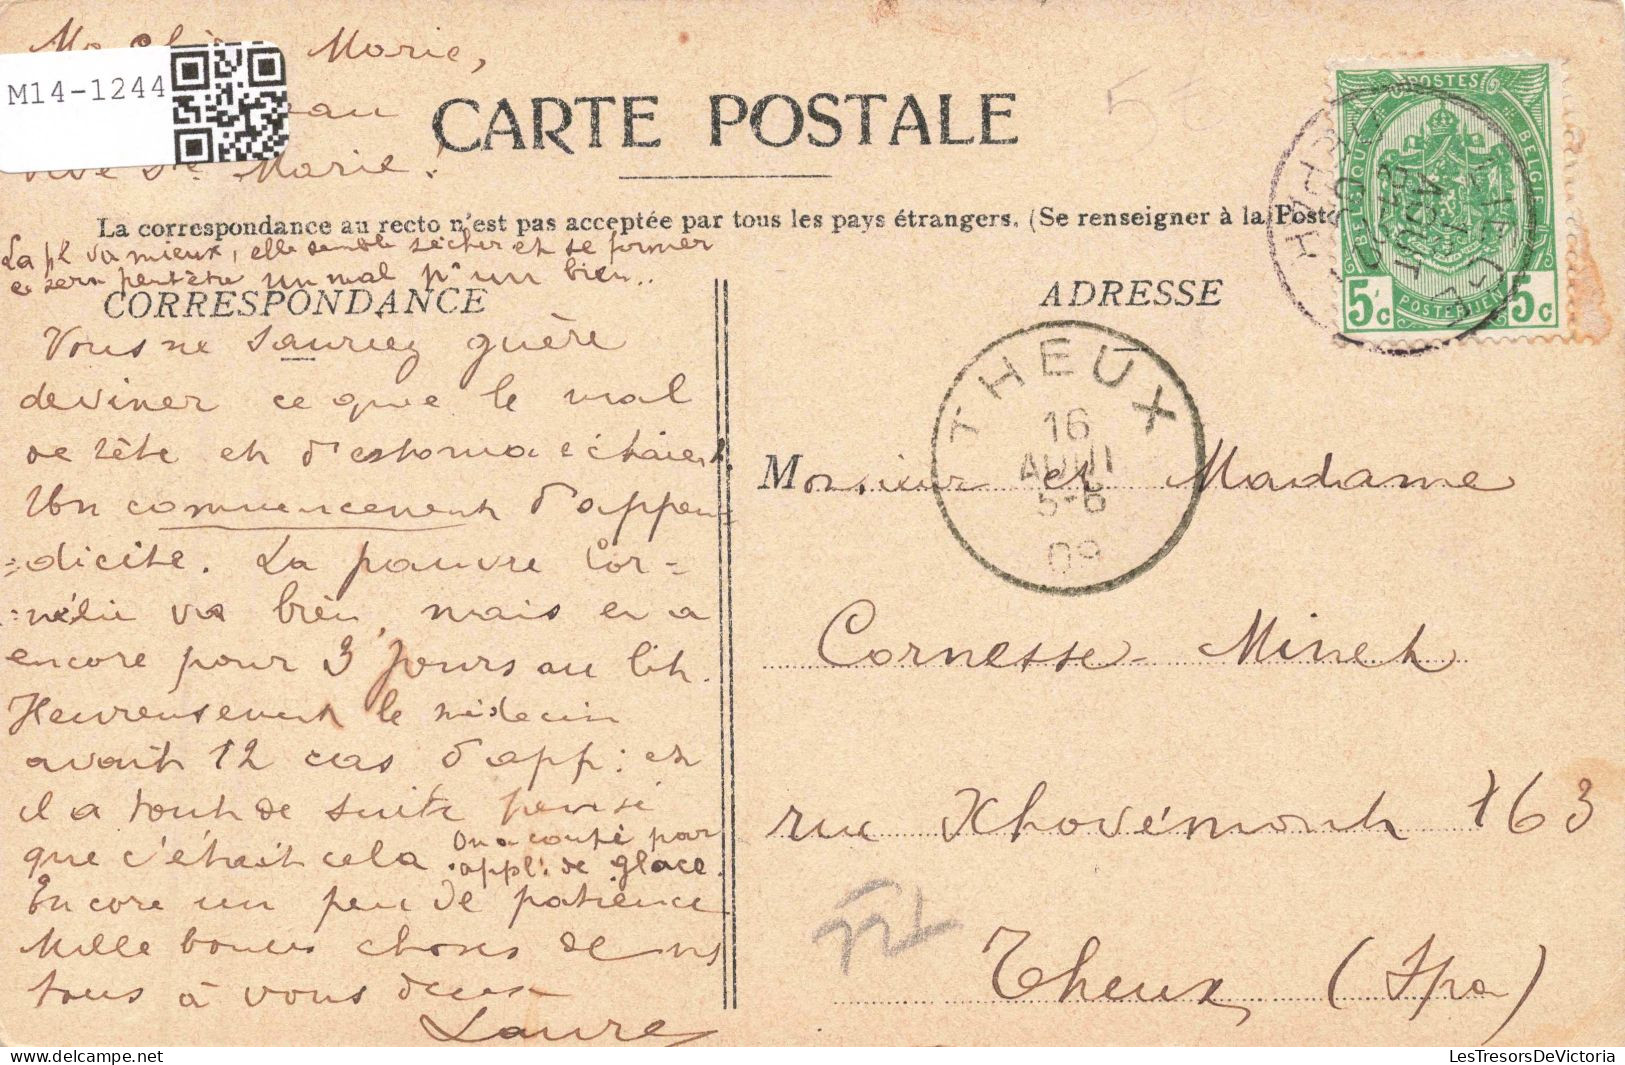 M14-1244
Marie,
Ste Marie!
CARTE POSTALE
La correspondance au recto n'est pas acceptée par tous les pays étrangers. (Se renseigner à la Poste
La pl va mieux, elle semble sécher et se former
ce sera peut être un mal pr un bien..
CORRESPONDANCE
Vous ne sauriez guère
deviner ce que le mal
de tête et d'estomac étaient.
Un commencement d'appen=
=dicite. La pauvre Cor=
=nélie va bien, mais en a
encore pour 3 jours au lit.
Heureusement le médecin
avait 12 cas d'app: et
il a tout de suite pensé
que c'était cela On a coupé par
appl: de glace.
Encore un peu de patience
Mille bonnes choses de ns
tous à vous deux
Laure
ADRESSE
POSTES
BELGIQUE
BELGIE
POSTERIJEN
5c 5c
THEUX
16
AOUT
5-6
09
Monsieur et Madame
Cornesse-Minet
rue Hovémont 163
Theux (Spa)
LesTresorsDeVictoria